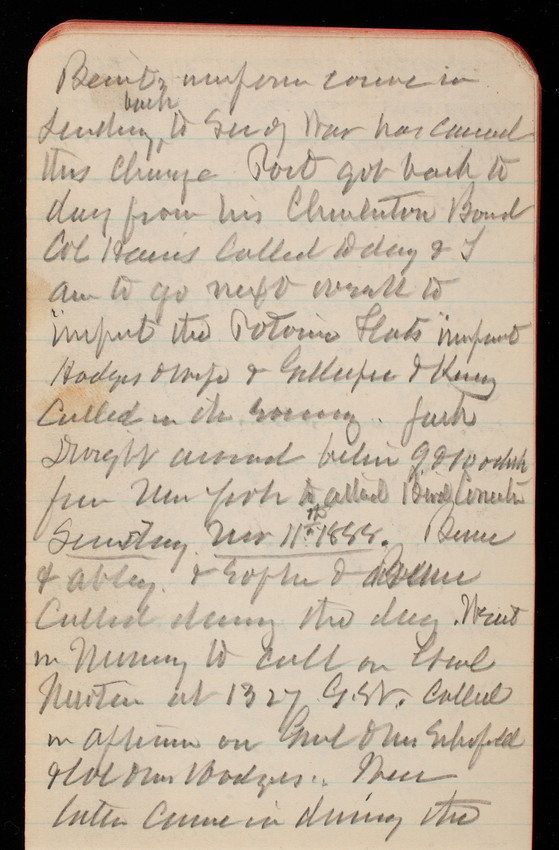 Benets uniform course in
sending back to Sec of War has caused
this change Post got back to
day from his Charleston Board
Col Hains called today & I
am to go next week to
"inspect the Potomac Flats"
Hodges & wife & Gillespie & King
called in the evening. Jack
Dwight arrived before
from New York to attend
Sunday Nov 11th 1888.
& Abby & Sophie &
called during the day. Went
in Morning to call on Genl
Newton at 1327 G. St. Called
in afternoon on Genl & Mrs Schofield
& Col & Mrs Hodges. Mrs
later came in during the